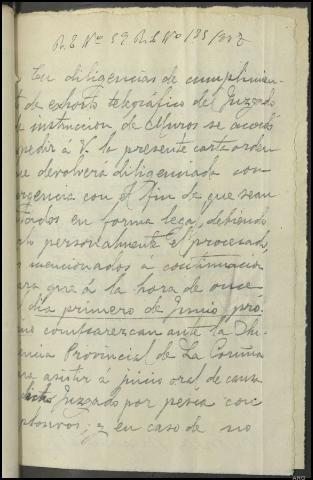 R.E. Nº 59 R.L. Nº 135/927
En diligencias de cumplimien-
de exhorto telegráfico del Juzgado
instrucion de Muros se acordó
pedir á V. la presente carta orden
devolverá diligenciada con
urgencia con el fin de que sean
citados en forma legal, debiendo
personalmente el procesado,
mencionados á continuación
para que á la hora de once
día primero de Junio pró-
comparezcan ante la Au-
encia Provincial de La Coruña
asistir á juicio oral de causa
dicho Juzgado por pesca con
plosivos; y en caso de no